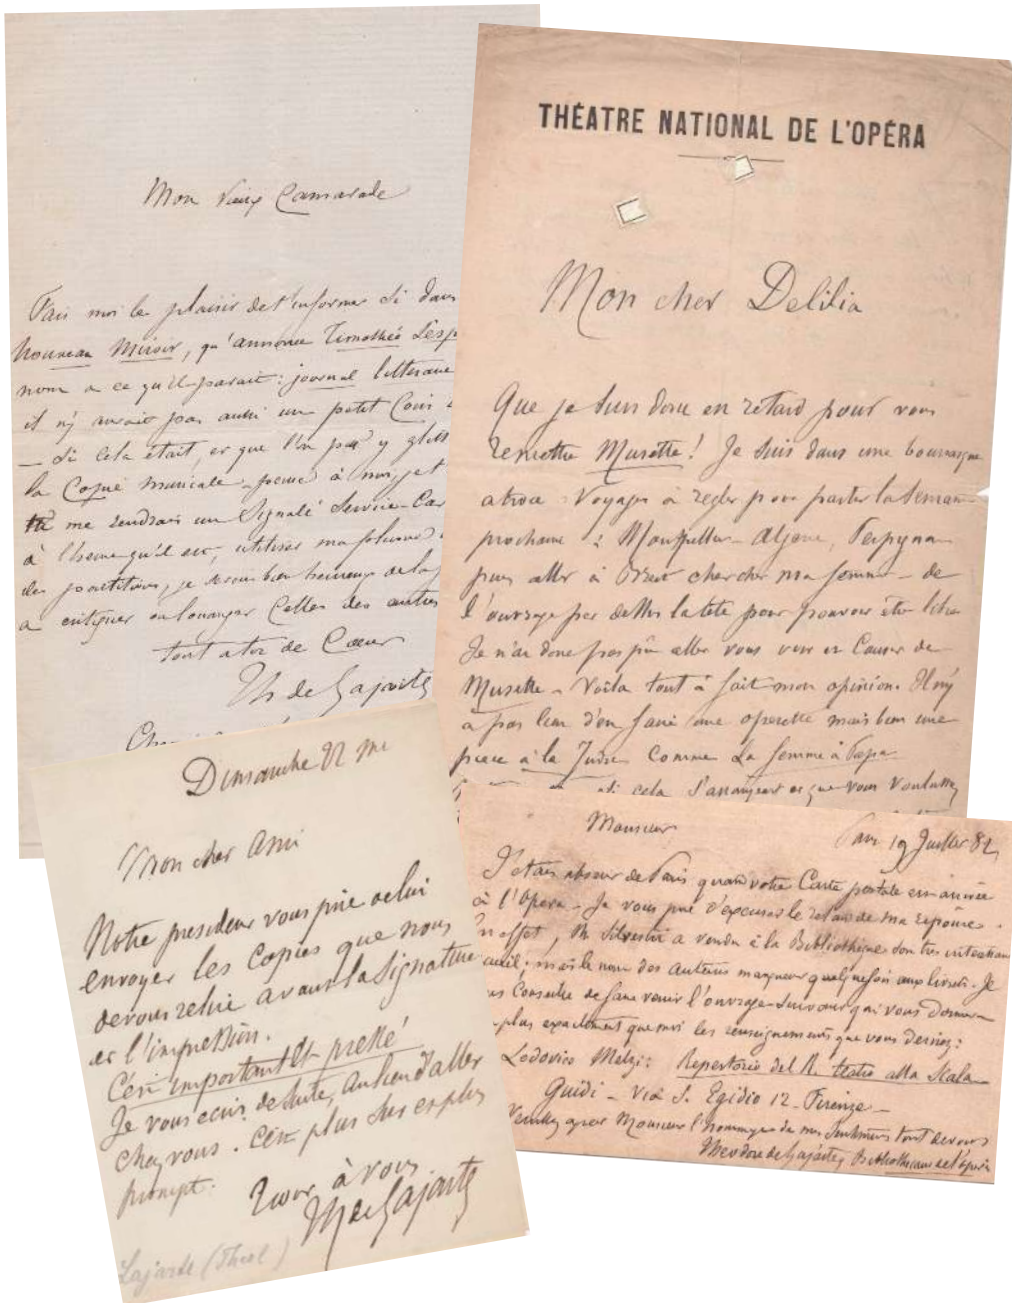 Mon vieux Camarade
Fais moi le plaisir de t'informer si dans
nouveau Miroir, qu'annonce Timothée
nom a ce qu'il parait : journal littéraire
il n'y aurait pas aussi un petit Coin
— Si cela était, et que l'on put y
la Copie musicale — pense à moi, je t
me rendrais un Signalé Service — Car
à l'heure qu'il est, utiliser ma plume
des partitions, je serais bien heureux de la
a critiquer ou louanger Celles des autres
tout a toi de Coeur
Th de Lajarte
THÉATRE NATIONAL DE L'OPÉRA
Mon cher Delilia
Que je suis donc en retard pour vous
remettre Musette ! Je suis dans une
atroce : Voyages à regler pour partir la
prochaine : Montpellier —
puis aller à chercher ma femme — de
l'ouvrage par dessus la tête pour pouvoir être libre
Je n'ai donc pas pû aller vous voir et Causer de
Musette — Voila tout à fait mon opinion. Il n'y
a pas lieu d'en faire une operette mais bien une
piece à la Judic Comme La femme à Papa
si cela s'arrangeait et que vous
Dimanche
Mon cher Ami
Notre president vous prie de lui
envoyer les Copies que nous
devons relire avant la Signature
et l'impression.
C'est important et pressé
Je vous ecris de suite, au lieu d'aller
chez vous. C'est plus sur et plus
prompt.
Tout à vous
Th de Lajarte
Lajarte (Theod )
Monsieur
Paris 19 Juillet 82
J'etais absent de Paris quand votre Carte postale est arrivée
à l'Opera — Je vous prie d'excuser le retard de ma reponse.
En effet, Mr Silvestri a vendu à la Bibliothèque son tres interessant
; mais le nom des Auteurs manque quelquefois aux livrets. Je
Conseille de faire venir l'ouvrage suivant qui vous donnera
plus exactement que moi les renseignements que vous desirez :
Lodovico Melzi : Repertorio del R. teatro alla Scala
Guidi — Via S. Egidio 12 — Firenze —
Veuillez agreer Monsieur l'hommage de mes Sentimens tout devoués
Theodore de Lajarte, Bibliothecaire de l'Opera